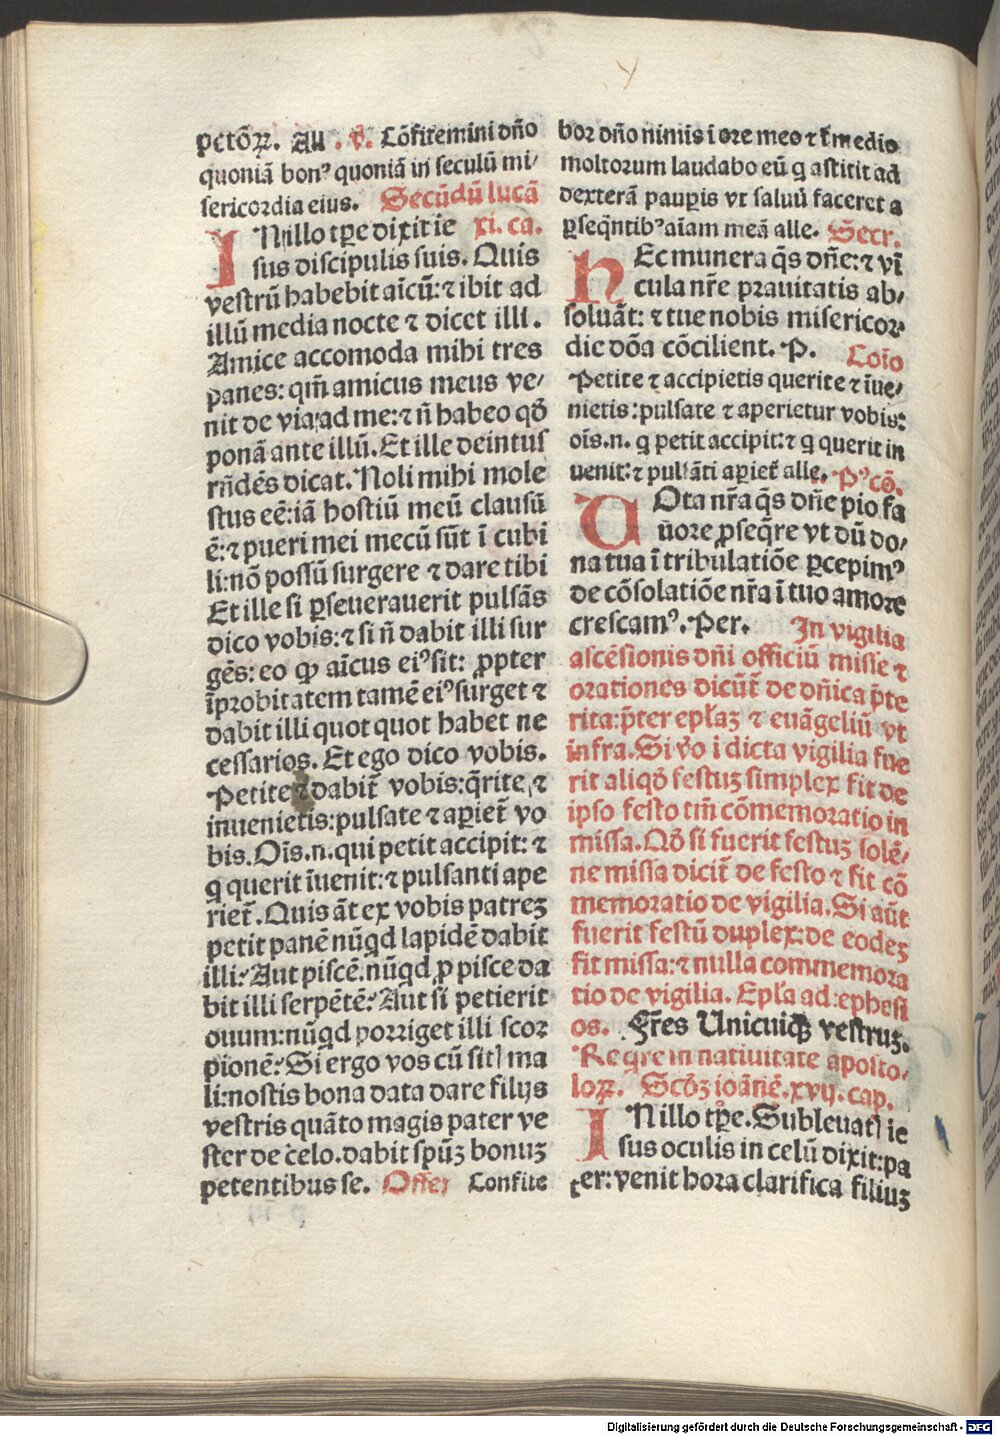 petõꝝ. Al̄l. ℣. Cõfitemini dño
quoniã bonꝰ quoniã in seculũ mi/
sericordia eius. Secũdũ lucã
INillo tp̃e dixit ie xi. ca.
sus discipulis suis. Quis
vestrũ habebit aĩcũ: ⁊ ibit ad
illũ media nocte ⁊ dicet illi.
Amice accomoda mihi tres
panes: qm̃ amicus meus ve/
nit de via ad me: ⁊ ñ habeo qð
ponã ante illũ. Et ille deintus
rñdẽs dicat. Noli mihi mole
stus eẽ: iã hostiũ meũ clausũ
ẽ: ⁊ pueri mei mecũ sũt ĩ cubi
li: nõ possũ surgere ⁊ dare tibi
Et ille si ꝑseuerauerit pulsãs
dico vobis: ⁊ si ñ dabit illi sur
gẽs: eo ꝙ aĩcus eiꝰ sit: ꝓpter
ĩprobitatem tamẽ eiꝰ surget ⁊
dabit illi quot quot habet ne
cessarios. Et ego dico vobis.
Petite ⁊ dabit̃ vobis: q̃rite, ⁊
inuenietis: pulsate ⁊ aꝑiet̃ vo
bis. Oĩs.n. qui petit accipit: ⁊
q querit ĩuenit: ⁊ pulsanti ape
riet̃. Quis ãt ex vobis patreꝫ
petit panẽ nũqd lapidẽ dabit
illi? Aut piscẽ. nũqd ꝓ pisce da
bit illi serpẽtẽ? Aut si petierit
ouum: nũqd porriget illi scor
pionẽ? Si ergo vos cũ sitꝭ ma
li: nostis bona data dare filijs
vestris quãto magis pater ve
ster de celo. dabit spũꝫ bonuꝫ
petentibus se. Offer Confite
bor dño nimis i ore meo ⁊ ĩ medio
moltorum laudabo eũ q astitit ad
dexterã pauꝑis vt saluũ faceret a
ꝑseq̃ntibꝰ aĩam meã alle. Secr.
HEc munera q̃s dñe: ⁊ vĩ
cula nr̃e prauitatis ab/
soluãt: ⁊ tue nobis misericor
die dõa cõcilient. P. Coĩo
Petite ⁊ accipietis querite ⁊ ĩue/
nietis: pulsate ⁊ aperietur vobis:
oĩs.n. q petit accipit: ⁊ q querit in
uenit: ⁊ pulsãti aꝑiet̃ alle. Pꝰcõ.
UOta nr̃a q̃s dñe pio fa
uore ꝓseq̃re vt dũ do/
na tua ĩ tribulatiõe ꝑcepimꝰ
de cõsolatiõe nr̃a ĩ tuo amore
crescamꝰ. Per. In vigilia
ascẽsionis dñi officiũ misse ⁊
orationes dicũt̃ de dñica p̃te
rita: p̃ter epl̃aꝫ ⁊ euãgeliũ vt
infra. Si v̊o i dicta vigilia fue
rit aliqð festuꝫ simplex fit de
ipso festo tm̃ cõmemoratio in
missa. Qð si fuerit festuꝫ solẽ/
ne missa dicit̃ de festo ⁊ fit cõ
memoratio de vigilia. Si aũt
fuerit festũ duplex: de eodeꝫ
fit missa: ⁊ nulla commemora
tio de vigilia. Epl̃a ad ephesi
os. Fr̃es Unicuiqꝫ vestruꝫ.
Req̃re in natiuitate aposto/
loꝝ. Scðꝫ ioãnẽ. xvij. cap.
INillo tp̃e. Subleuatꝭ ie
sus oculis in celũ dixit: pa
ter: venit hora clarifica filiuꝫ
Digitalisierung gefördert durch die Deutsche Forschungsgemeinschaft - DFG